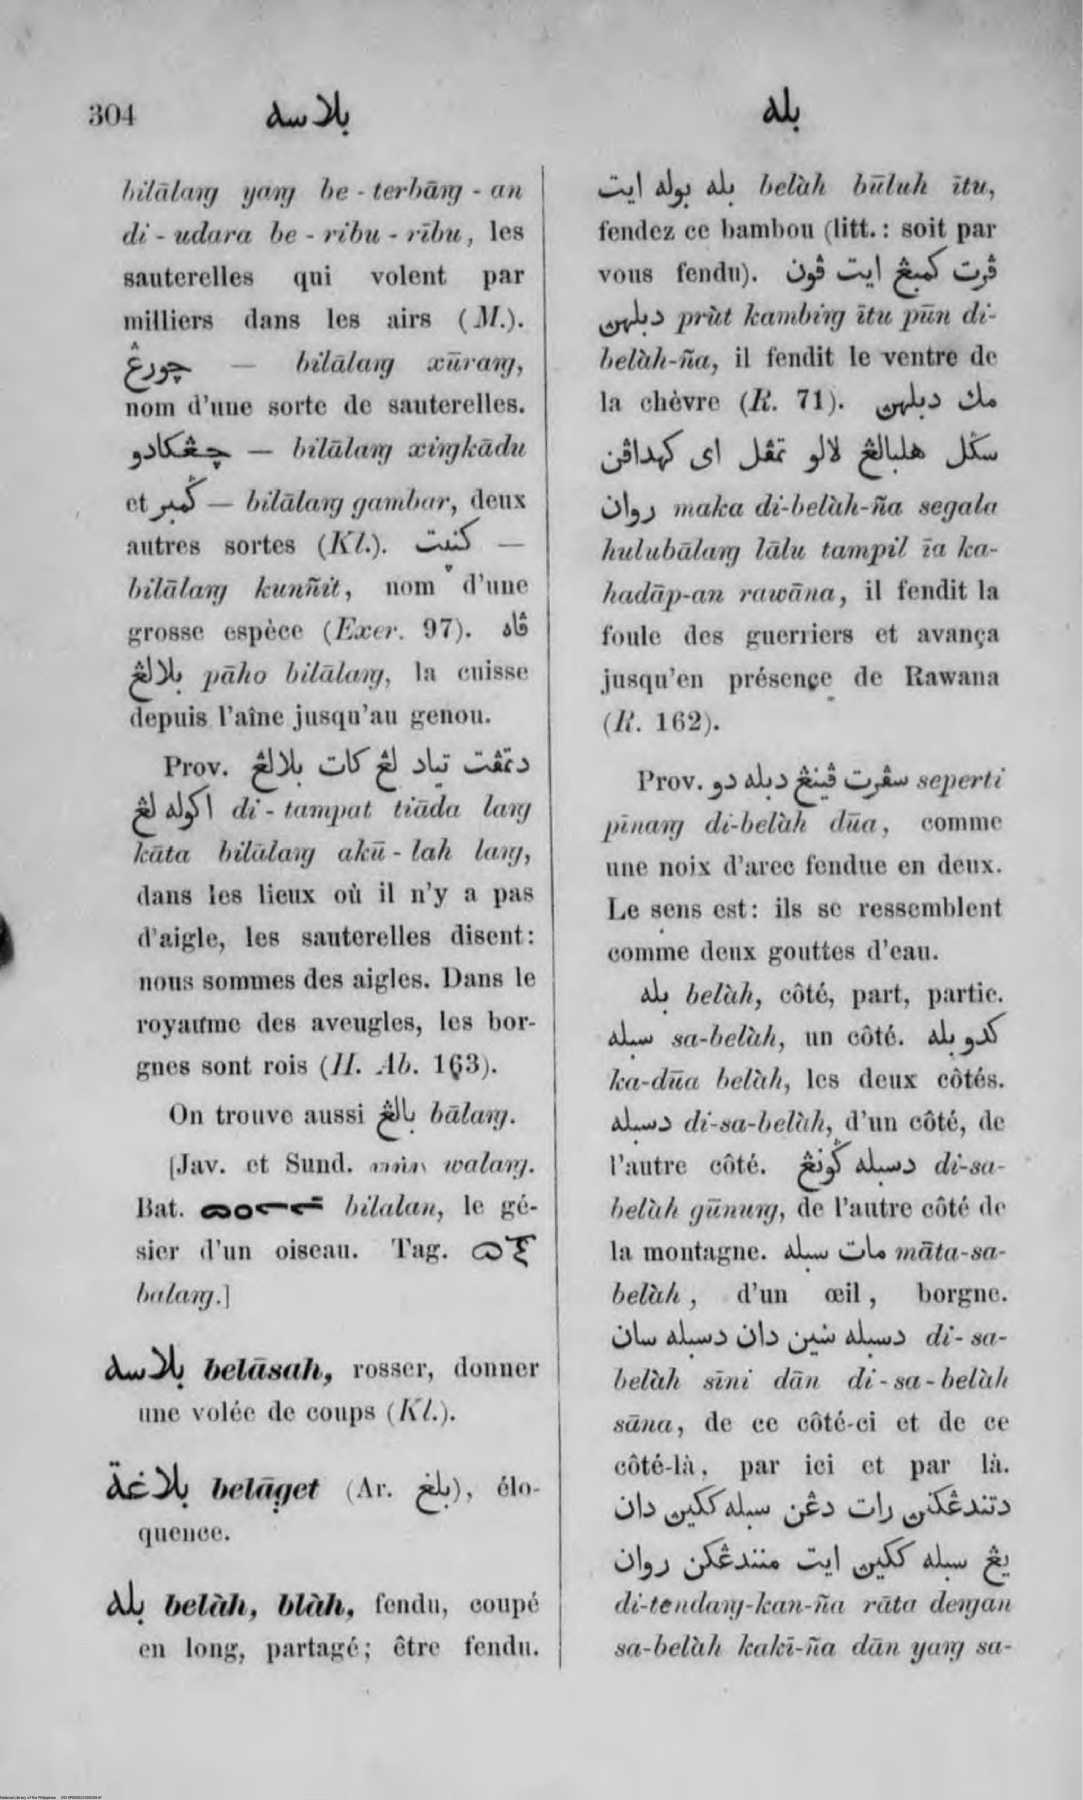 304
بلاسه
بله
bilālaŋ yaŋ be - terbāŋ - an
di - udara be - ribu - rību, les
sauterelles qui volent par
milliers dans les airs (M.).
چورڠ — bilālaŋ xūraŋ,
nom d'une sorte de sauterelles.
چڠکادو — bilālaŋ xiŋkādu
et ڬمبر — bilālaŋ gambar, deux
autres sortes (Kl.). کنيت —
bilālaŋ kunñit, nom d'une
grosse espèce (Exer. 97). ڤاه
بلالڠ pāho bilālaŋ, la cuisse
depuis l'aîne jusqu'au genou.
Prov. دتمڤت تياد لڠ کات بلالڠ
اکوله لڠ di - tampat tiāda laŋ
kāta bilālaŋ akū - lah laŋ,
dans les lieux où il n'y a pas
d'aigle, les sauterelles disent:
nous sommes des aigles. Dans le
royaume des aveugles, les bor-
gnes sont rois (H. Ab. 163).
On trouve aussi بالڠ bālaŋ.
[Jav. et Sund. walaŋ.
Bat. bilalan, le gé-
sier d'un oiseau. Tag.
balaŋ.]
بلاسه belāsah, rosser, donner
une volée de coups (Kl.).
بلاغة belāget (Ar. بلغ), élo-
quence.
بله belàh, blàh, fendu, coupé
en long, partagé; être fendu.
بله بوله ايت belàh būluh ītu,
fendez ce bambou (litt.: soit par
vous fendu). ڤرت کمبڠ ايت ڤون
دبلهن prùt kambiŋ ītu pūn di-
belàh-ña, il fendit le ventre de
la chèvre (R. 71). مك دبلهن
سڬل هلبالڠ لالو تمڤل اى کهداڤن
روان maka di-belàh-ña segala
hulubālaŋ lālu tampil īa ka-
hadāp-an rawāna, il fendit la
foule des guerriers et avança
jusqu'en présence de Rawana
(R. 162).
Prov. سڤرت ڤينڠ دبله دو seperti
pīnaŋ di-belàh dūa, comme
une noix d'arec fendue en deux.
Le sens est: ils se ressemblent
comme deux gouttes d'eau.
بله belàh, côté, part, partie.
سبله sa-belàh, un côté. کدو بله
ka-dūa belàh, les deux côtés.
دسبله di-sa-belàh, d'un côté, de
l'autre côté. دسبله ڬونڠ di-sa-
belàh gūnuŋ, de l'autre côté de
la montagne. مات سبله māta-sa-
belàh, d'un œil, borgne.
دسبله سين دان دسبله سان di- sa-
belàh sīni dān di - sa - belàh
sāna, de ce côté-ci et de ce
côté-là, par ici et par là.
دتندڠکنن رات دڠن سبله ککين دان
يڠ سبله ککين ايت منندڠکن روان
di-tendaŋ-kan-ña rāta deŋan
sa-belàh kakī-ña dān yaŋ sa-